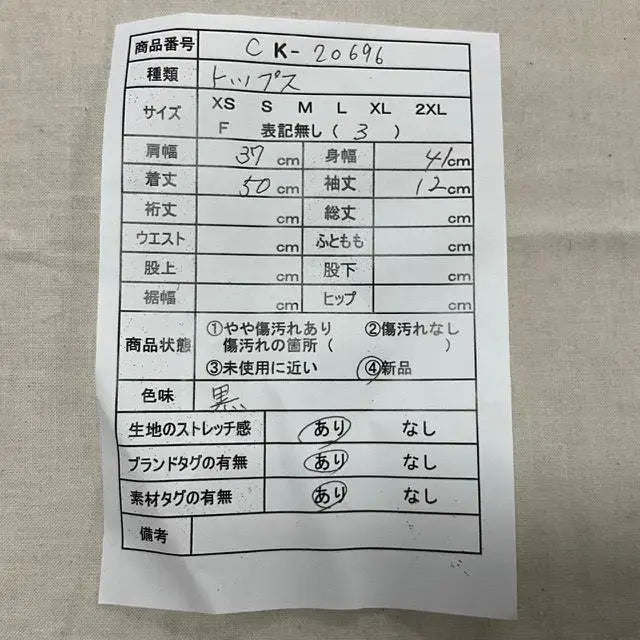 商品番号 CK-20696
種類 トップス
サイズ XS S M L XL 2XL
F 表記無し ( 3 )
肩幅 37 cm 身幅 41 cm
着丈 50 cm 袖丈 12 cm
裄丈 cm 総丈 cm
ウエスト cm ふともも cm
股上 cm 股下 cm
裾幅 cm ヒップ cm
商品状態 ①やや傷汚れあり ②傷汚れなし
傷汚れの箇所 ( )
③未使用に近い ④新品
色味 黒
生地のストレッチ感 あり なし
ブランドタグの有無 あり なし
素材タグの有無 あり なし
備考